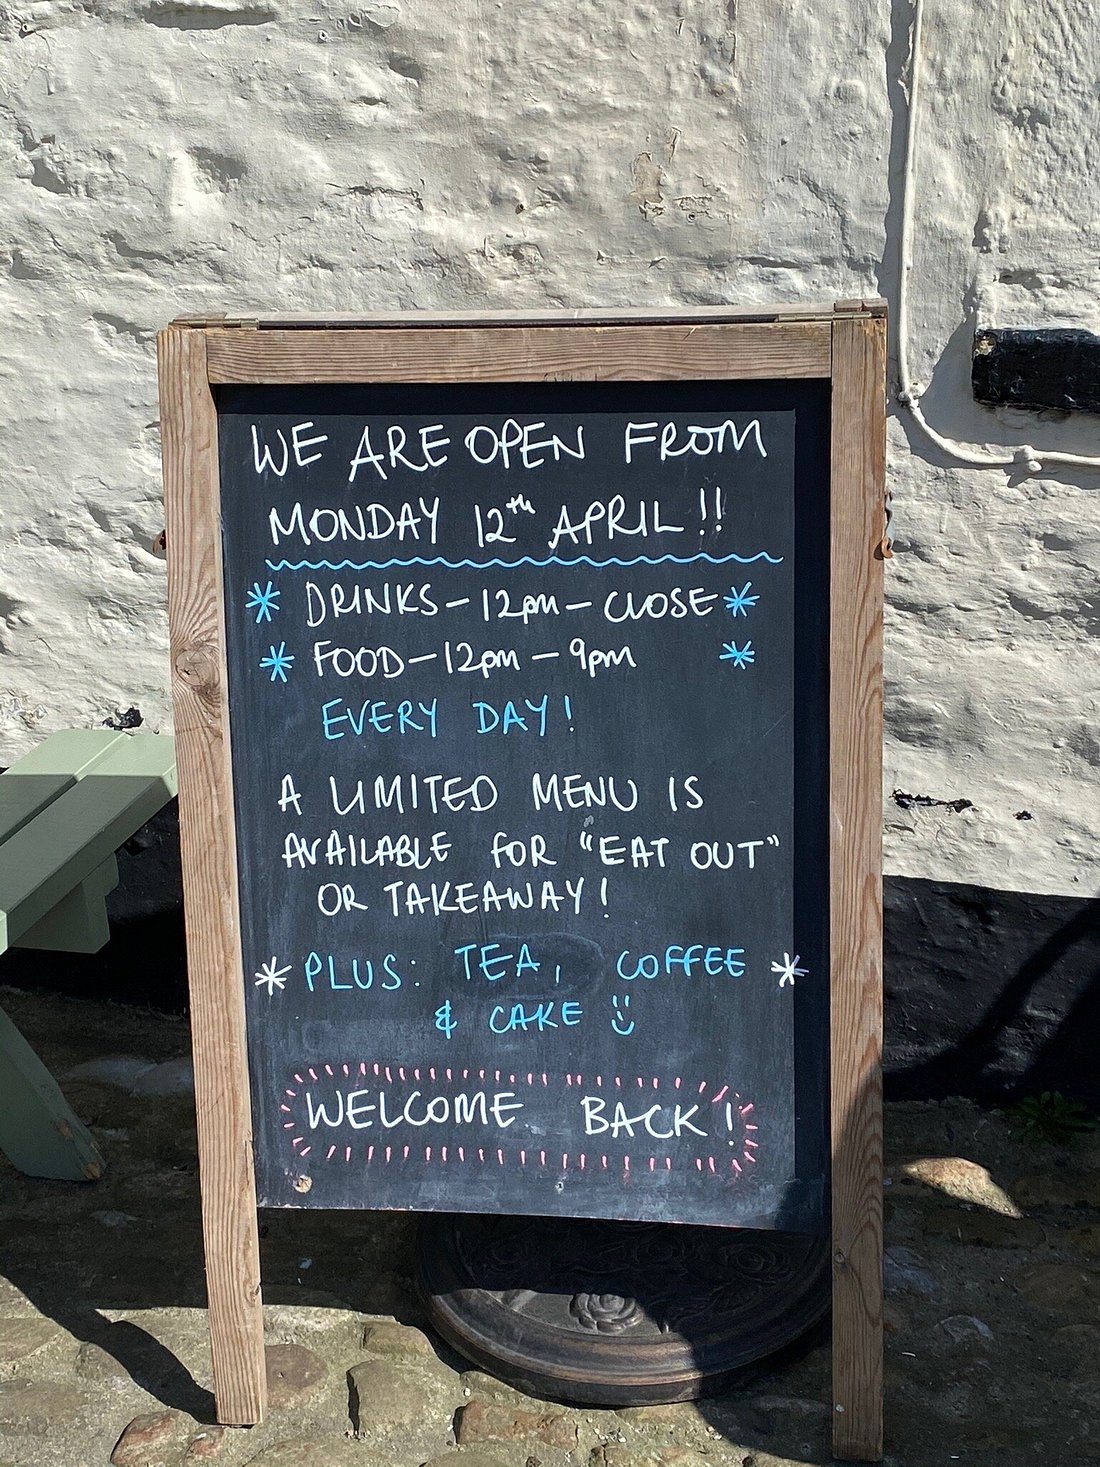 WE ARE OPEN FROM
MONDAY 12th APRIL!!
* DRINKS - 12pm - CLOSE *
* FOOD - 12pm - 9pm *
EVERY DAY!
A LIMITED MENU IS
AVAILABLE FOR "EAT OUT"
OR TAKEAWAY!
* PLUS: TEA, COFFEE *
& CAKE :)
WELCOME BACK!